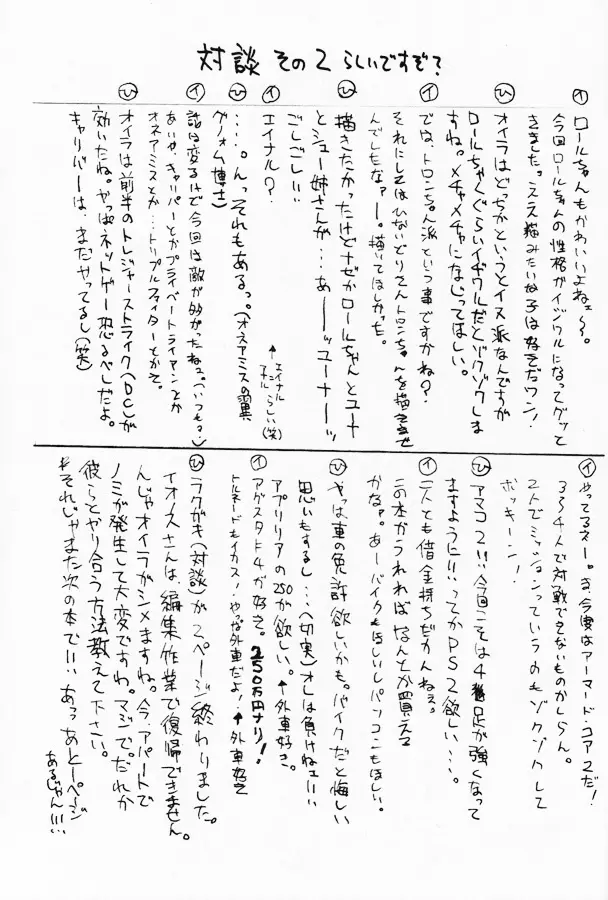 対談 その2 らしいですぞ？
イ ロールちゃんもかわいいよねェ〜〜。
今回ロールちゃんの性格がイジワルになってグッと
ききました。ええ描みたいな子は好きだワン！
ヒ オイラはどっちかというとイヌ派なんですが
ロールちゃんぐらいイヂワルだとゾクゾクしま
すね。メチャメチャにないってほしい。
イ では、トロンちゃん派という事ですかね？
それにしてはひないどりさんトロンちゃんを描きませ
んでしたなァー。描いてほしかった。
ヒ 描きたかったけどナゼかロールちゃんとユーナ
とシュー姉さんが…あ――ッユーナ――ッ
ごしごしい
イ エイナル？
↑エイナル らしい(笑)
ヒ ‥‥。んっそれもあるっ。(オネアミスの翼
グノォム博士)
イ 話は変るけど今回は敵が多かったねっ。(いつも？)
あいや、キャリバーとかプライベートライアンとか
オネアミスとか…トリプルファイターとかで。
ヒ オイラは前半のトレジャーストライク(DC)が
効いたね。やっぱネットゲー恐るべしだよ。
キャリバーは、まだやってるし(笑)
イ やってるネー。お、今度はアーマード・コア2だ！
3〜4人で対戦できないものかしらん。
2人でミッションっていうのもゾクゾクして
ボッキーン！
ヒ アマコア2!!今回こそは4脚足が強くなって
ますように!!ってかPS2欲しい‥‥。
イ 二人とも借金持ちだかんねェ。
この本がうれればなんとか買える
かなァ。あーバイクもほしいしパソコンもほしい。
ヒ やっぱ車の免許欲しいかも。バイクだと悔しい
思いもするし…(切実)オレは負けねェ!!
アプリリアの250が欲しい。↑外車好き。
イ アグスタF4が好き。250万円ナリ！
トルネードもイカス！やな外車だよ！↑外車好き
ヒ ラクガキ(対談)が2ページ終わりました。
イオ スさんは編集作業で復帰できません。
んじゃオイラがシメますね。今、アパートで
ノミが発生して大変ですね。マジで。だれか
彼らとやり合う方法教えて下さい。
それじゃまた次の本で!! あっあと一ページ
あるじゃん!!!